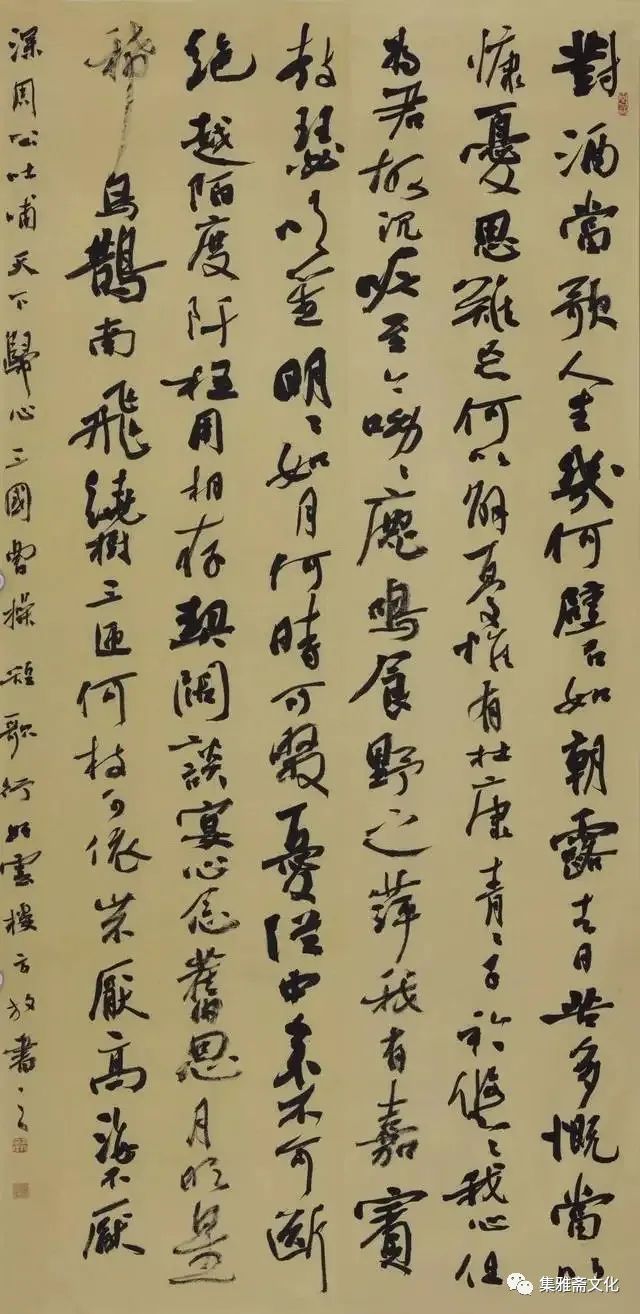 對酒當歌人生幾何譬如朝露去日苦多慨當以
慷憂思難忘何以解憂惟有杜康青々子衿悠々我心但
為君故沉吟至今呦々鹿鳴食野之萍我有嘉賓
鼓瑟吹笙明々如月何時可掇憂從中來不可斷
絕越陌度阡枉用相存契闊談宴心念舊恩月明星
稀烏鵲南飛繞樹三匝何枝可依山不厭高海不厭
深周公吐哺天下歸心三國曹操短歌行雲樓方放書之
集雅斋文化